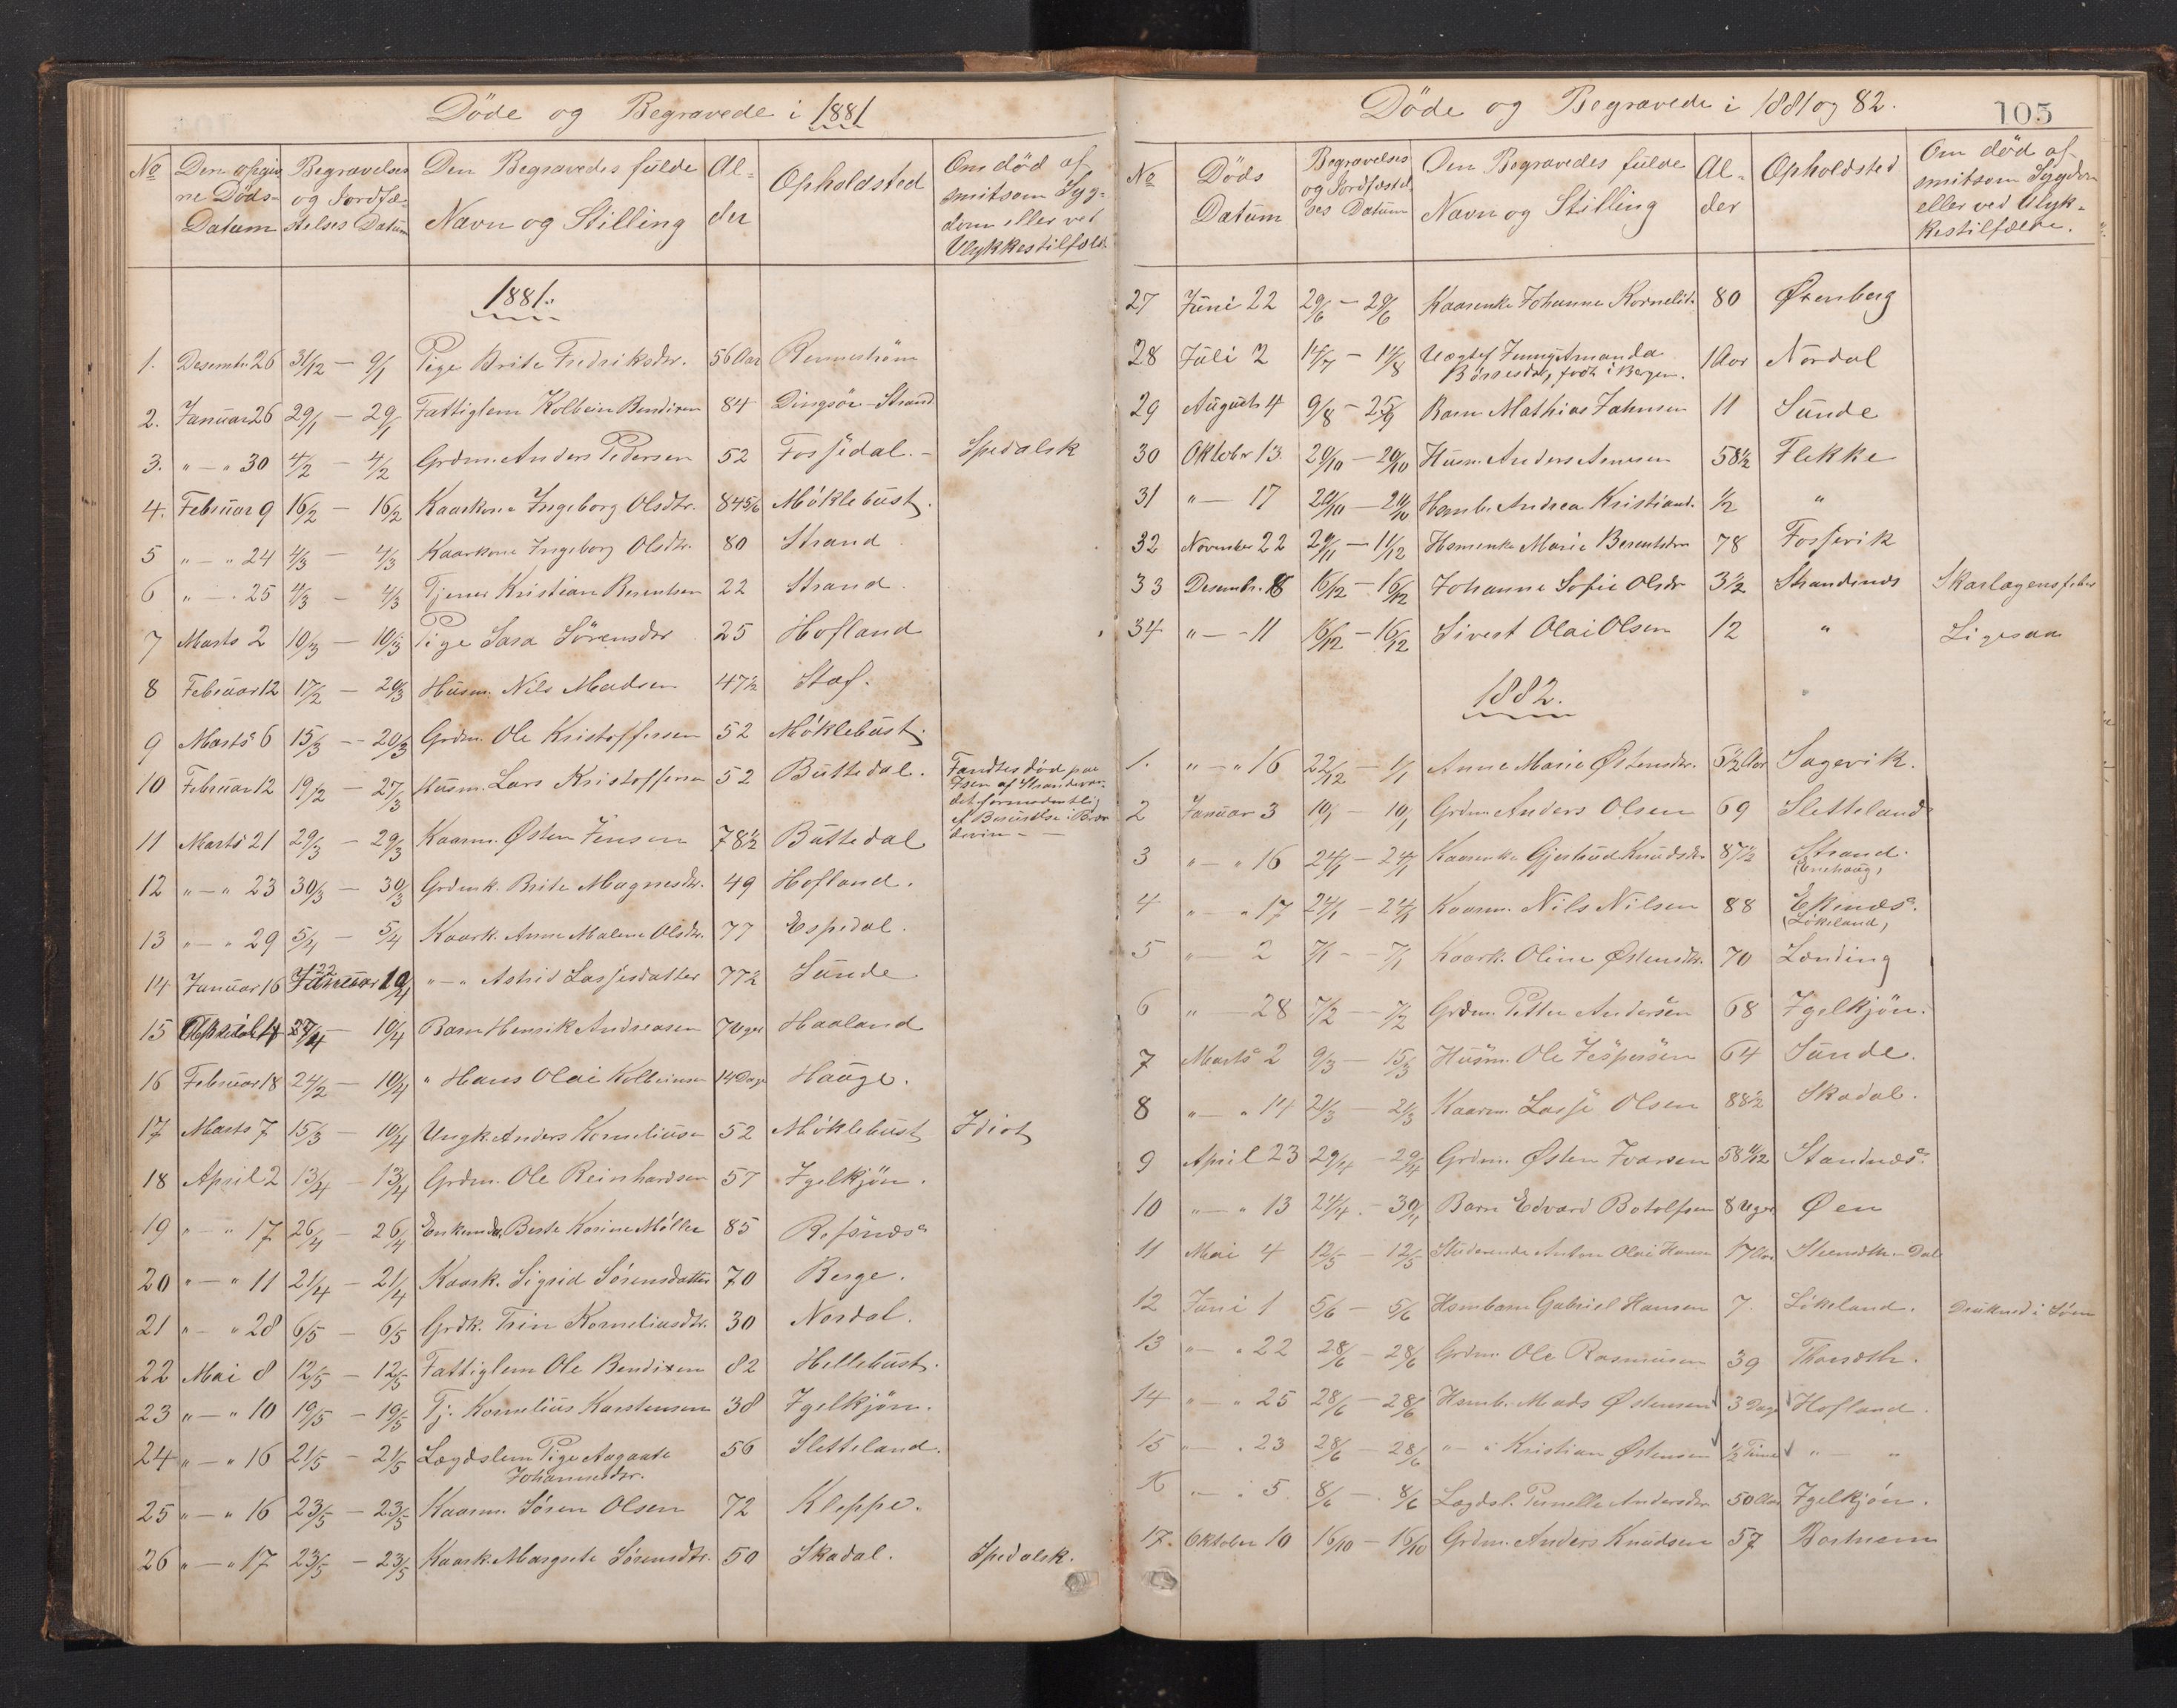 Döde og Begravede i 1881
No
Den opgiv
ne Döds-
Datum
Begravelses
og Jordfæ-
stelses Datum
Den Begravedes fulde
Navn og Stilling
Al-
der
Opholdsted
Om död af
smitsom Syg-
dom eller ved
Ulykkestilfæld
1881.
1. Desembr. 26 31/12 — 9/1 Pige Brite Fredriksdtr. 56 Aar
2. Januar 26 29/1 — 29/1 Fattiglem Kolbein Bendixen 84 Dingsör - Strand
3. " — " 30 4/2 — 4/2 Grdm. Anders Pedersen 52 Fossedal. — Spedalsk
4. Februar 9 16/2 — 16/2 Kaarkone Ingeborg Olsdtr. 84 5/6 Möklebust.
5 " — " 24 4/3 — 4/3 Kaarkone Ingeborg Olsdtr. 80 Strand
6 " — " 25 4/3 — 4/3 Tjener Kristian Berentsen 22 Strand.
7 Marts 2 10/3 — 10/3 Pige Sara Sörensdtr 25 Hofland
8 Februar 12 17/2 — 20/3 Husm. Nils Madsen 47 1/2
9 Marts 6 15/3 — 20/3 Grdm. Ole Kristoffersen 52 Möklebust.
10 Februar 12 19/2 — 27/3 Husm. Lars Kristoffersen 52 Buttedal. Fandtes död paa
Isen af Strandevan-
det formodentlig
af Beruselse i Bræn
devin —
11 Marts 21 29/3 — 29/3 Kaarm. Østen Jensen 78 1/2 Buttedal
12 " — " 23 30/3 — 30/3 Grdmk. Brite Magnesdtr. 49 Hofland.
13 " — " 29 5/4 — 5/4 Kaark. Anne Malene Olsdtr. 77 Espedal.
14 Januar 16 22 Januar 10/4 " — " Astrid Lassesdatter 77 1/2 Sunde
15 10/4 Barn Henrik Andreasen 7 Uger Haaland
16 Februar 18 24/2 — 10/4 " Hans Olai Kolbeinsen 14 Dage Hauge.
17 Marts 7 15/3 — 10/4 Ungk. Anders Korneliusen 52 Möklebust Idiot
18 April 2 13/4 — 13/4 Grdm. Ole Reinhardsen 57 Igelkjön.
19 " — " 17 26/4 — 26/4 Karine Möller 85 Refsnæs
20 " — " 11 21/4 — 21/4 Kaark. Sigrid Sörensdatter 70 Berge.
21 " — " 28 6/5 — 6/5 Grdk. Trin Korneliusdtr. 30 Nordal.
22 Mai 8 12/5 — 12/5 Fattiglem Ole Bendixen 82 Hellebust.
23 " — " 10 19/5 — 19/5 Tj. Kornelius Karstensen 38 Igelkjön.
24 " — " 16 21/5 — 21/5 Lægdslem Pige Aagaate
Johannesdtr. 56 Sletteland.
25 " — " 16 23/5 — 23/5 Kaarm. Sören Olsen 72 Kleppe.
26 " — " 17 23/5 — 23/5 Kaark. Margrete Sörensdtr. 50 Skadal. Spedalsk.
Döde og Begravede i 1881 og 82.
105
No
Döds
Datum
Begravelses
og Jordfæstel
ses Datum
Den Begravedes fulde
Navn og Stilling
Al-
der
Opholdsted
Om död af
smitsom Sygdom
eller ved Ulyk-
kestilfælde.
27 Juni 22 29/6 — 29/6 Kaarenke Johanne Kornelidtr. 80 Øxenberg
28 Juli 2 14/7 — 14/8 Jenny Amanda
födt i Bergen. 1 Aar Nordal
29 August 4 9/8 — 25/9 Barn Mathias Johnsen 11 Sunde
30 Oktober 13 20/10 — 20/10 Husm. Anders Arnesen 58 1/2 Flekke
31 " — 17 20/10 — 20/10 Hsmb. Andrea Kristiand. 1/2 "
32 November 22 29/11 — 11/12 Hsmenke Marie Berentsdtr 78 Fossevik
33 Desembr. 8 16/12 — 16/12 Johanne Sofie Olsdr 3 1/2 Strandenæs Skarlagensfeber
34 " — - 11 16/12 — 16/12 Sivert Olai Olsen 12 " Ligesaa
1882.
1. " — " 16 22/12 — 1/1 Anne Marie Østensdtr. 6 1/2 Aar Sagevik.
2 Januar 3 10/1 — 10/1 Grdm Anders Olsen 69 Sletteland
3 " — " 16 24/1 — 24/1 Kaarenke Gjertrud Knudsdtr 87 1/2 Strand.
(Enehaug)
4 " — " 17 24/1 — 24/1 Kaarm. Nils Nilsen 88 Ekenæs.
(Lökeland)
5 " — 2 7/1 — 7/1 Kaark. Oline Østensdtr. 70 Lending
6 " — 28 7/2 — 7/2 Grdm. Petter Andersen 68 Igelkjön.
7 Marts 2 9/3 — 15/3 Husm. Ole Jespersen 64 Sunde.
8 " — " 14 21/3 — 21/3 Kaarm. Lasse Olsen 88 1/2 Skadal.
9 April 23 29/4 — 29/4 Grdm. Østen Ivarsen 58 11/12 Standnæs.
10 " — " 13 24/4 — 30/4 Barn Edvard Botolfsen 8 Uger Øen
11 Mai 4 12/5 — 12/5 Studerende Anton Olai Hansen 17 Aar
12 Juni 1 5/6 — 5/6 Hsmbarn Gabriel Hansen 7. Lökeland. Druknede i Söen
13 " — " 22 28/6 — 28/6 Grdm. Ole Rasmusen 39
14 " — " 25 28/6 — 28/6 Hsmb. Mads Østensen 3 Dage Hofland.
15 " — " 23 28/6 — 28/6 " — " Kristian Østensen 1/2 Time " — "
16 " — " 5 8/6 — 8/6 Lægdsl. Pernelle Andersdtr 50 Aar Igelkjön.
17. Oktober 10 16/10 — 16/10 Grdm. Anders Knudsen 57 Bortnem